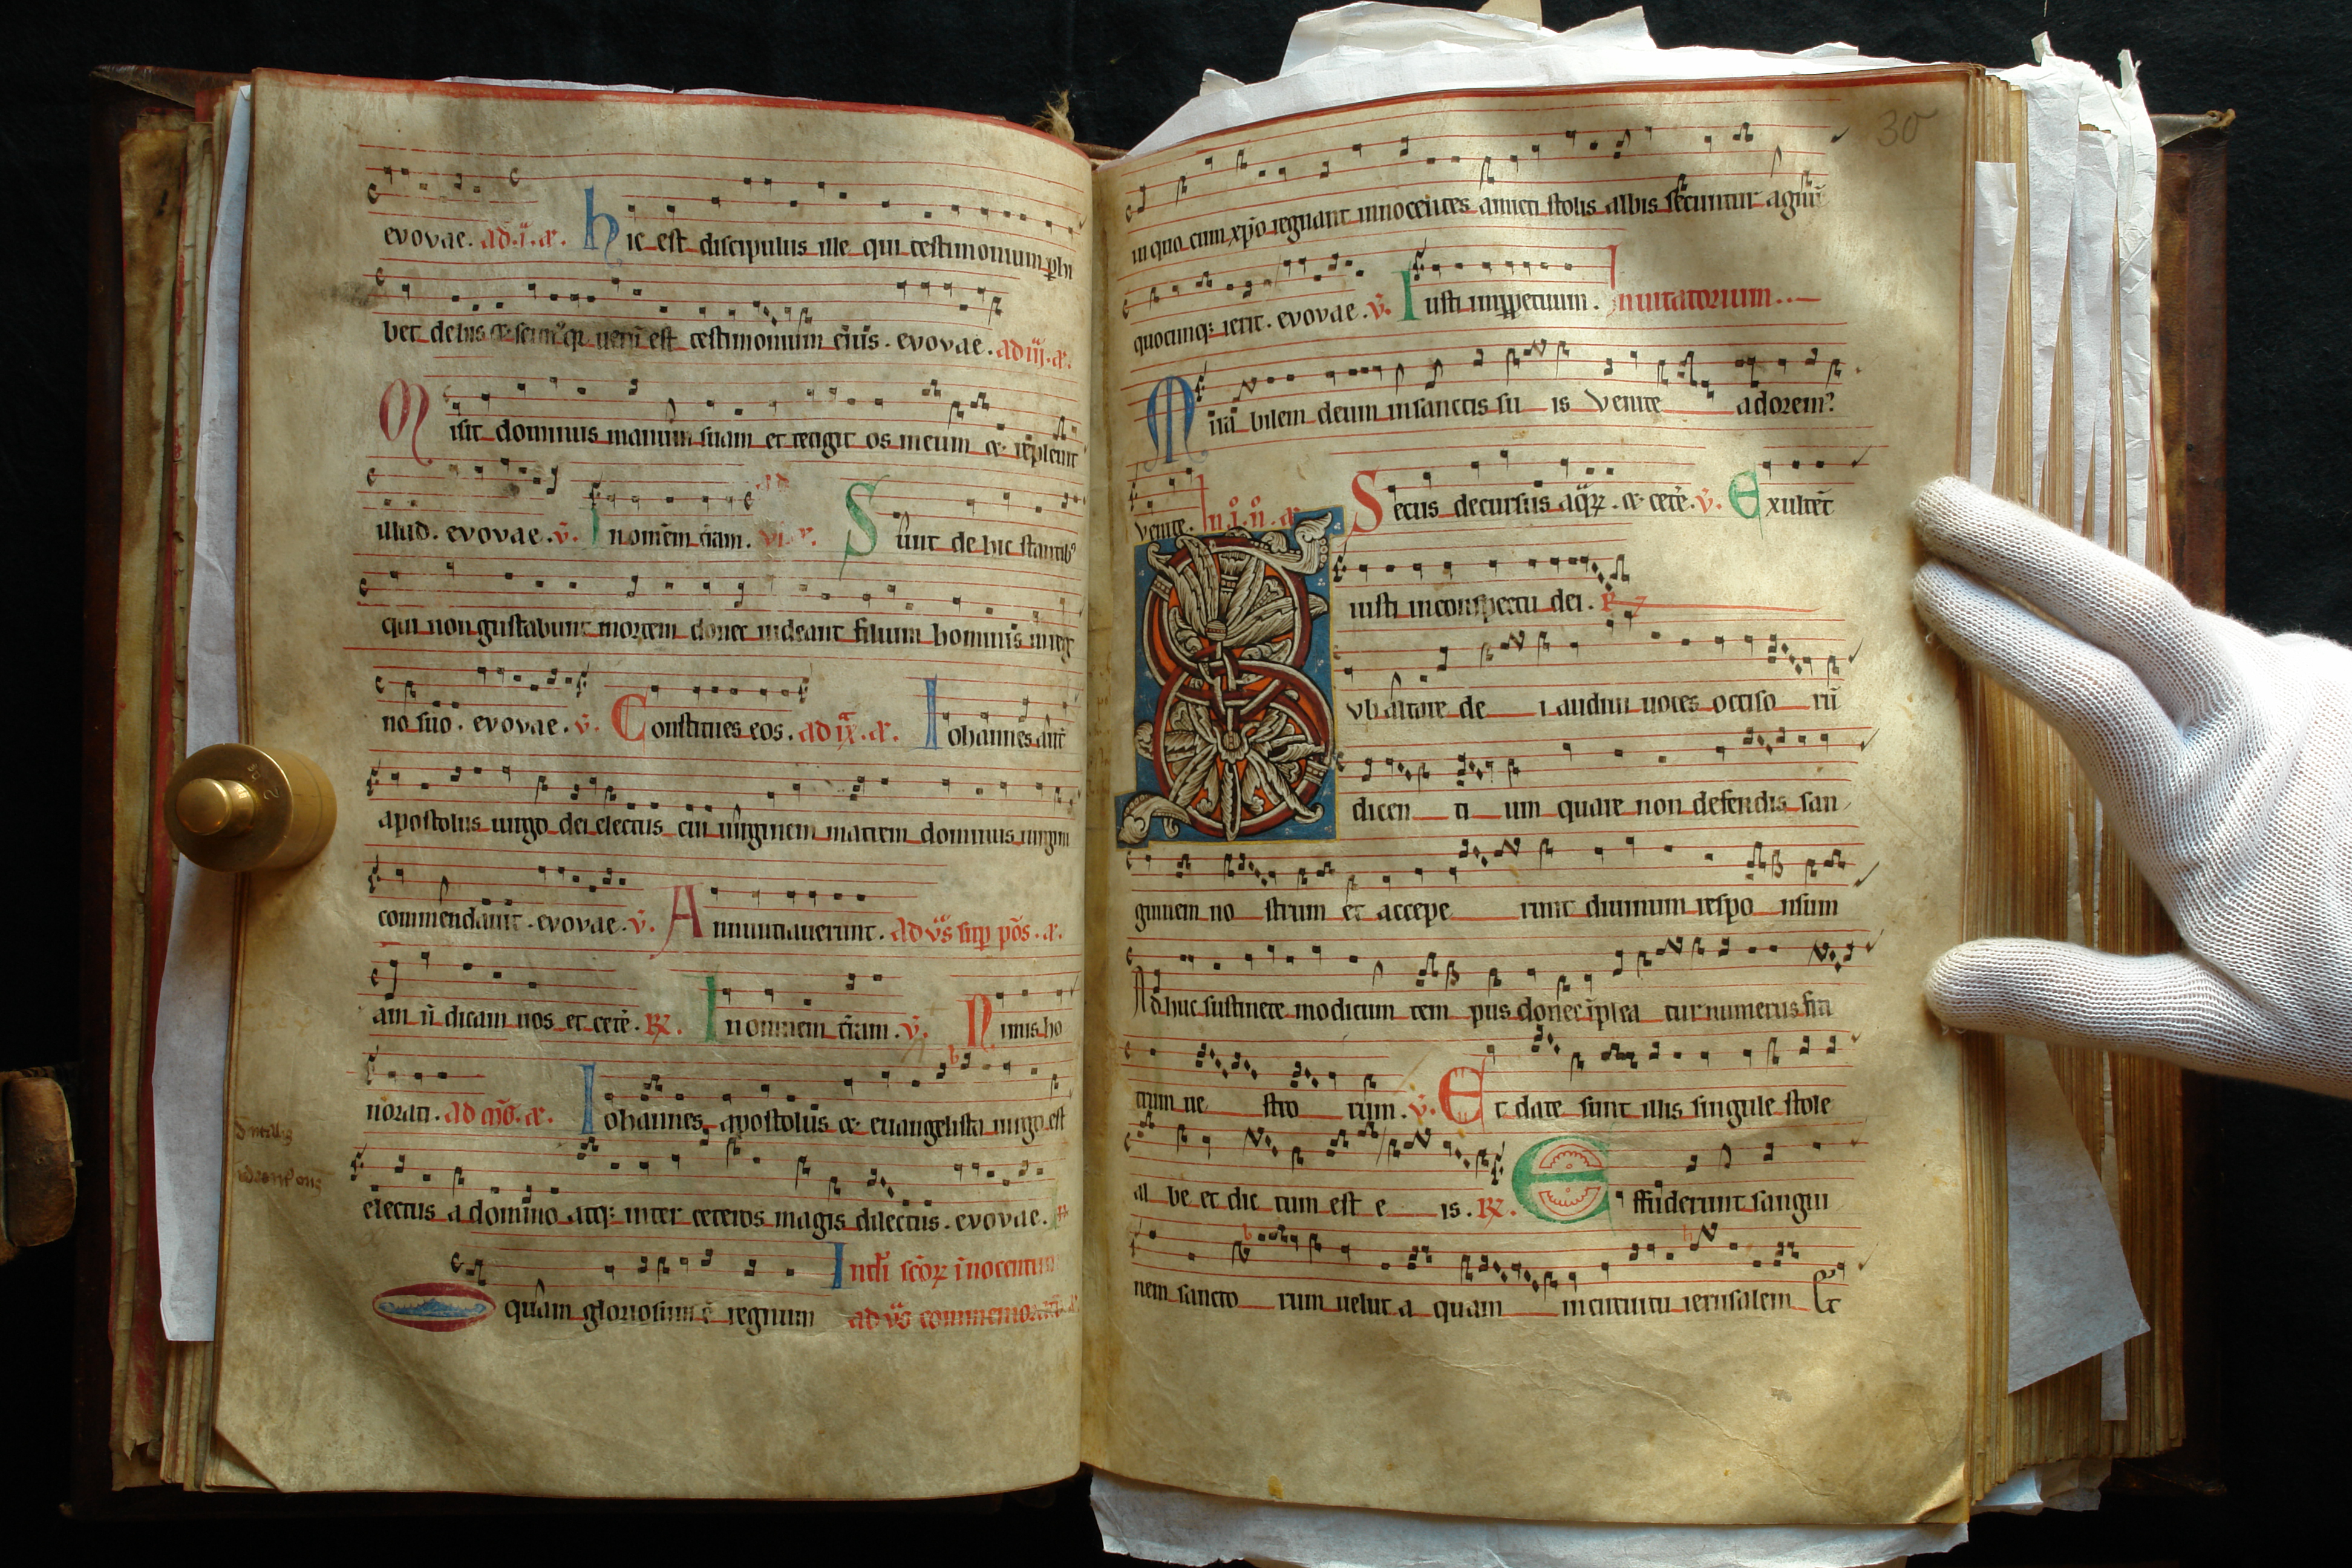 evovae. ad .i. æ. hic est discipulus ille qui testimonium phi
bet de his æ scimꝰ qꝛ ueru est testimonium eius. evovae. ad iij. æ.
Misit dominus manum suam et tetigit os meum æ repleuit
illud. evovae. v̄. In omnem t̄ram. Sunt de hic stantibꝰ
qui non gustabunt mortem donec uideant filium hominis in reg
no suo. evovae. v̄. Constitues eos. ad ix. æ. Iohannes aut̄
apostolus uirgo dei electus cui uirginem matrem dominus uirgini
commendauit. evovae. v̄. Annuntiauerunt. ad v̄s sup̄ pōs. æ.
am n̄ dicam uos et cetē. ℟. In omnem t̄ram. v̄. Nimis ho
norati. ad mō. æ. Iohannes apostolus æ euangelista uirgo est
electus a domino atqꝫ inter ceteros magis dilectus. evovae.
O quam gloriosum ē regnum In nat̄l scōꝝ inocentum
ad v̄s commemoratō
30
in quo cum xp̄o regnant innocentes amicti stolis albis secuntur agnū
quocumqꝫ ierit. evovae. v̄. Iusti in ꝑpetuum. Inuitatorium.
Mirabilem deum in sanctis su is venite adoremꝰ
venite. In .i. n̄. æ. Secus decursus aqꝝ. æ cetē. v̄. Exultent
iusti in conspectu dei. ℟
Sub altare de i audiui uoces occiso rū
dicen ti um quare non defendis san
guinem no strum et accepe runt diuinum respo nsum
Adhuc sustinete modicum tem pus donec īplea tur numerus fra
trum ue stro rum. v̄. Et date sunt illis singule stole
al be et dic tum est e is. ℟. Effuderunt sangui
nem sancto rum uelut a quam in circuitu ierusalem Et